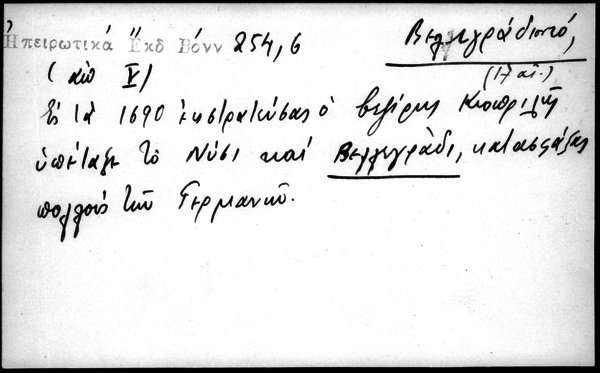 Ἠπειρωτικά Ἐκδ Βόνν 254,6
Βελλιγράδιον,
(17 αἰ.)
( V)
Εἰς τὰ 1690 ἐκστρατεύσας ὁ βεζίρης Κιοπριλῆς
ὑπέταξε τὸ Νύσι καὶ Βελλιγράδι, κατασφάξας
πολλοὺς τῶν Γερμανῶν.